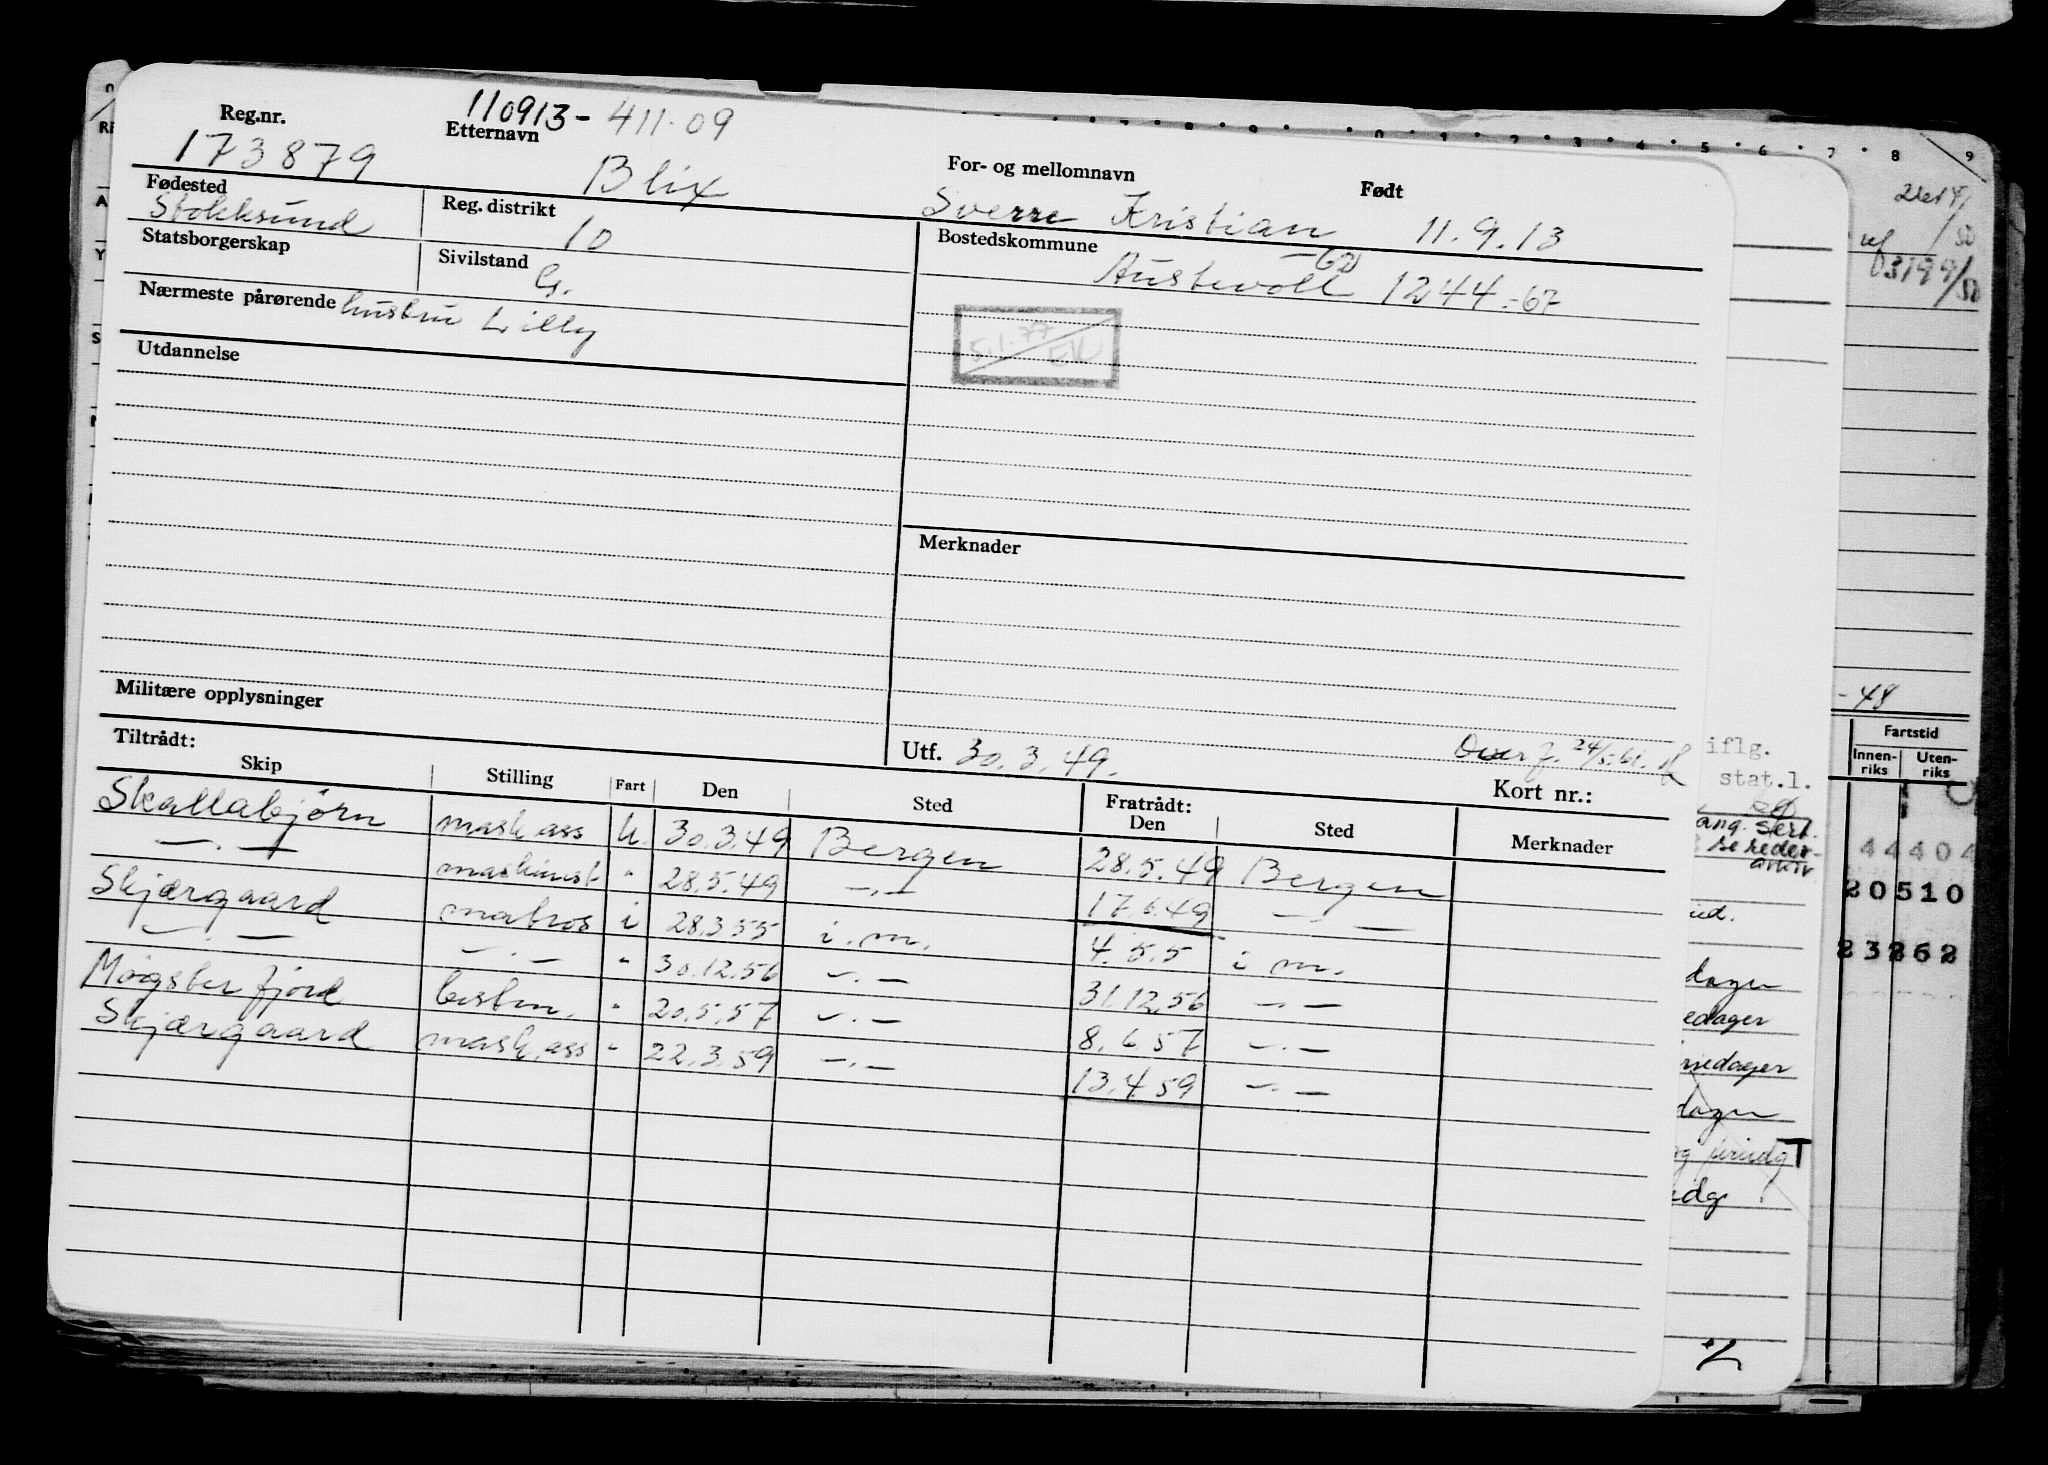 110913-411.09
Reg.nr. 173879
Etternavn Blix
For- og mellomnavn Sverre Kristian
Født 11.9.13
Fødested Stokksund
Reg. distrikt 10
Statsborgerskap
Sivilstand G.
Bostedskommune Austevoll 1244 -67
-60
Nærmeste pårørende hustru Lilly
5.1.77 EK
Utdannelse
Merknader
Militære opplysninger
Utf. 30.3.49. Overf. 24/5.61.
Tiltrådt: Kort nr.:
Skip Stilling Fart Den Sted Fratrådt: Den Sted Merknader
Skallabjörn mask ass U. 30.3.49 Bergen 28.5.49 Bergen
—.— maskinist " 28.5.49 —.— 17.6.49 —.—
Skjærgaard matros i 28.3.55 i.m. 4.5.5 i m.
—.— —.— " 30.12.56 —.— 31.12.56 —.—
Møgsterfjord bestm. " 20.5.57 —.— 8.6.57 —.—
Skjærgaard mask.ass " 22.3.59 —.— 13.4.59 —.—
7 8 9
1 2 3 4 5 6 7 8 9
03199/50
-48
Fartstid
Innen-riks Uten-riks
iflg.
stat.l.
ang. sert.
se reder-
arkiv
4 4 4 0 4
2 0 5 1 0
2 3 2 6 2
dager
edager
riedager
dager
T
edg